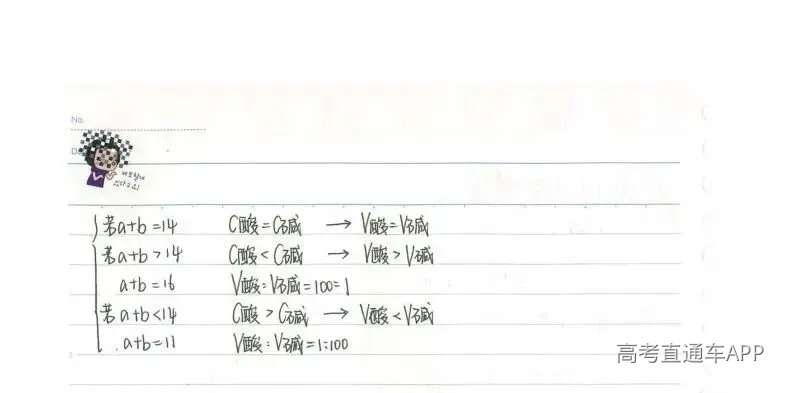 No.
Da
若a+b=14 C酸=C碱 → V酸=V碱
若a+b>14 C酸<C碱 → V酸>V碱
a+b=16 V酸:V碱=100=1
若a+b<14 C酸>C碱 → V酸<V碱
a+b=11 V酸:V碱=1:100
高考直通车APP